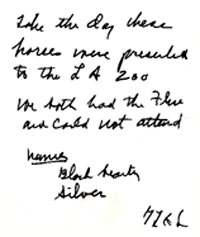 Like the day these
horses were presented
to the LA Zoo
We both had the Flu
and could not attend
Names
Black beauty
Silver